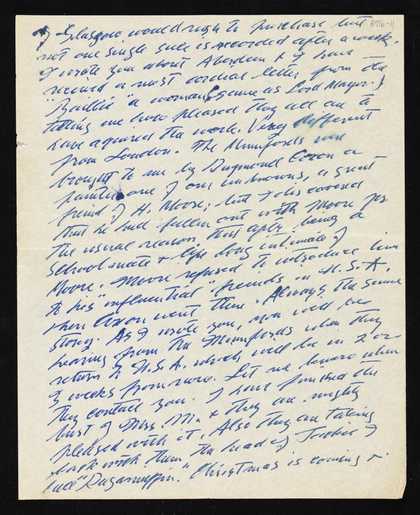 of Glasgow would rush to purchase but
not one single sale is recorded after a week.
I wrote you about Aberdeen & I have
received a most cordial letter from the
"Baillie" a woman, same as Lord Mayor
telling me how pleased they all are to
have acquired the work. Very different
from London. The Mumfords were
brought to me by Raymond Coxon a
painter one of our unknowns, a great
friend of H. Moore; but I discovered
that he had fallen out with Moore for
the usual reason, that after being a
school mate & life long intimate of
Moore, Moore refused to introduce him
to his "influential" friends in U.S.A.
when Coxon went there. Always the same
story. As I wrote you, you will be
hearing from the Mumfords when they
return to U.S.A. which will be in 2 or
3 weeks from now. Let me know when
they contact you. I have finished the
bust of Miss M. & they are mighty
pleased with it. Also they are taking
back with them the head of
"Ragamuffin". Christmas is coming